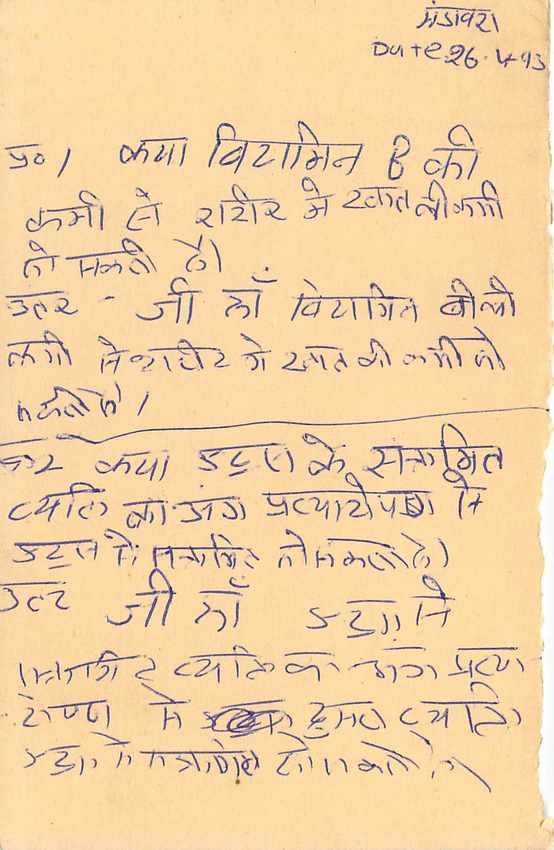 मंडावरा
Date 26.4.93
प्र० 1 क्या विटामिन B की
कमी से शरीर मे खून की कमी
हो सकती है।
उत्तर - जी हाँ विटामिन बी की
कमी से शरीर मे खून की कमी हो
सकती है।
प्र० 2 क्या एड्स के संक्रमित
व्यक्ति का अंग प्रत्यारोपण से
एड्स से संक्रमित हो सकता है।
उत्तर जी हाँ एड्स से
संक्रमित व्यक्ति का अंग प्रत्या
रोपण से दूसरा व्यक्ति
एड्स से संक्रमित हो सकता है।